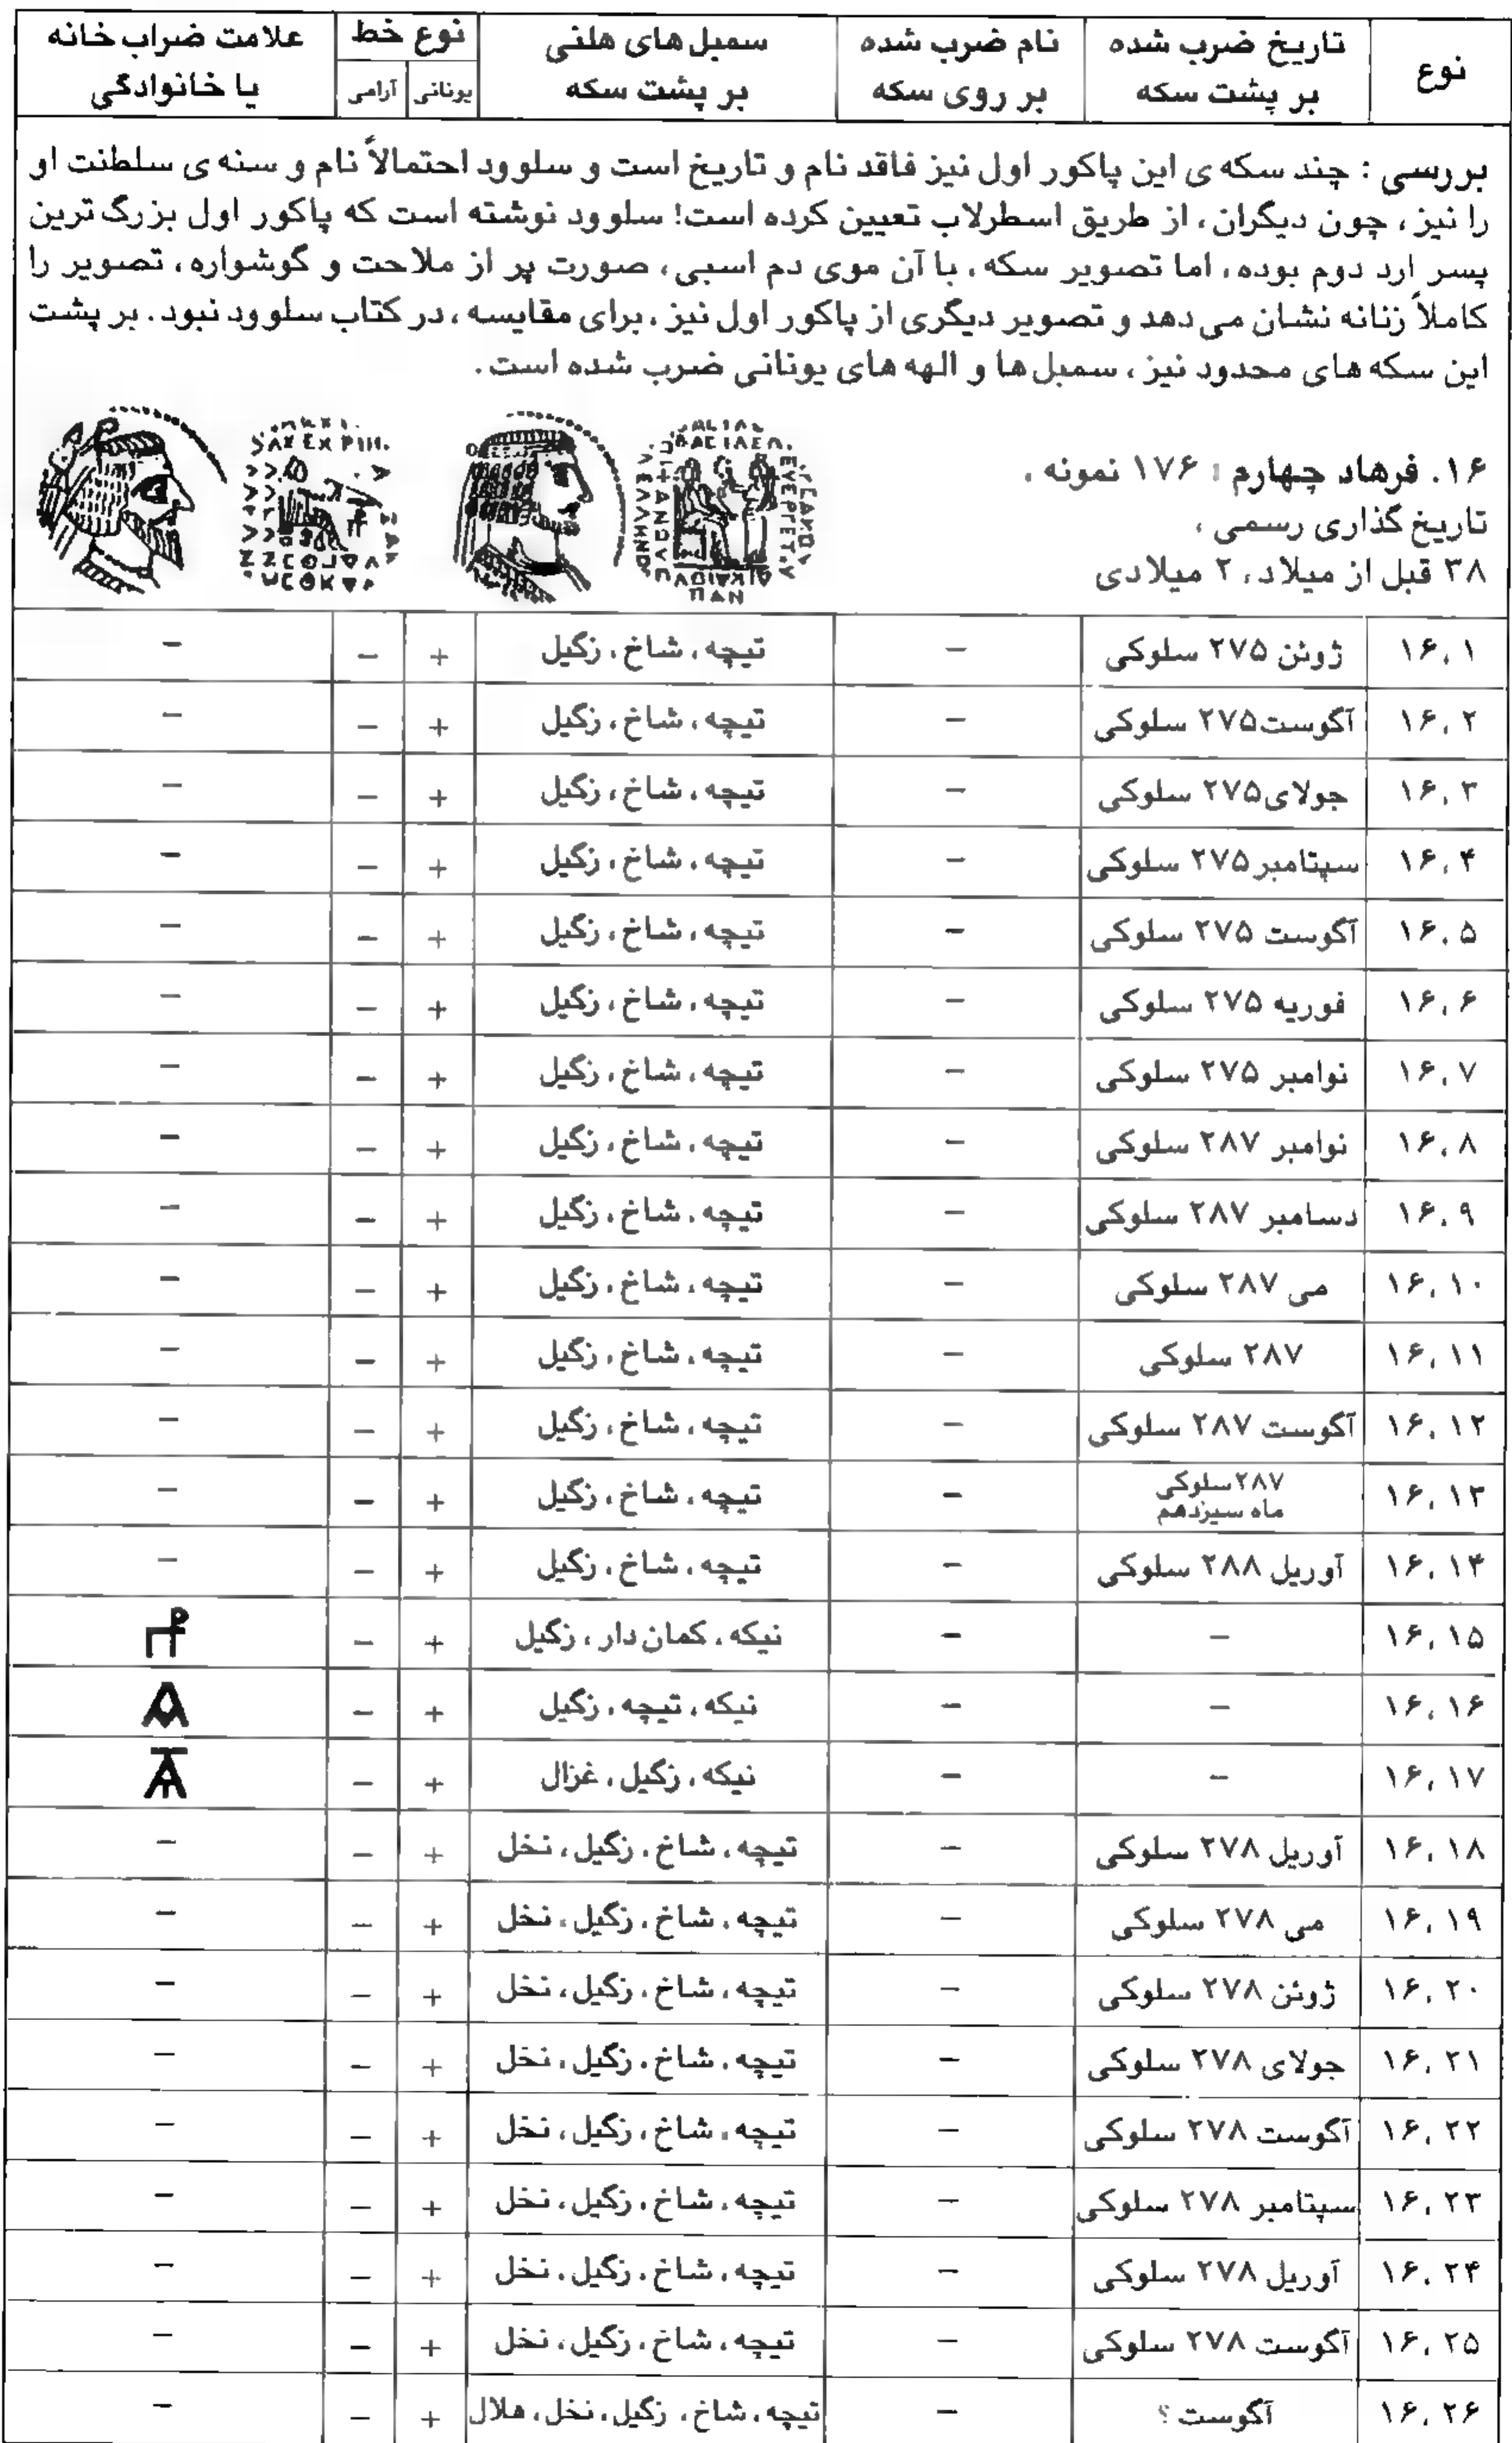 نوع | تاریخ ضرب شده بر پشت سکه | نام ضرب شده بر روی سکه | سمبل های هلنی بر پشت سکه | نوع خط یونانی آرامی | علامت ضراب خانه یا خانوادگی
بررسی : چند سکه ی این پاکور اول نیز فاقد نام و تاریخ است و سلوود احتمالاً نام و سنه ی سلطنت او
را نیز ، چون دیگران ، از طریق اسطرلاب تعیین کرده است! سلوود نوشته است که پاکور اول بزرگ ترین
پسر ارد دوم بوده ، اما تصویر سکه ، با آن موی دم اسبی ، صورت پر از ملاحت و گوشواره ، تصویر را
کاملاً زنانه نشان می دهد و تصویر دیگری از پاکور اول نیز ، برای مقایسه ، در کتاب سلوود نبود . بر پشت
این سکه های محدود نیز ، سمبل ها و الهه های یونانی ضرب شده است .
۱۶. فرهاد چهارم : ۱۷۶ نمونه ،
تاریخ گذاری رسمی ،
۳۸ قبل از میلاد ، ۲ میلادی
۱۶,۱ | ژوئن ۲۷۵ سلوکی | – | تیچه ، شاخ ، زگیل | + | – | –
۱۶,۲ | آگوست ۲۷۵ سلوکی | – | تیچه ، شاخ ، زگیل | + | – | –
۱۶,۳ | جولای ۲۷۵ سلوکی | – | تیچه ، شاخ ، زگیل | + | – | –
۱۶,۴ | سپتامبر ۲۷۵ سلوکی | – | تیچه ، شاخ ، زگیل | + | – | –
۱۶,۵ | آگوست ۲۷۵ سلوکی | – | تیچه ، شاخ ، زگیل | + | – | –
۱۶,۶ | فوریه ۲۷۵ سلوکی | – | تیچه ، شاخ ، زگیل | + | – | –
۱۶,۷ | نوامبر ۲۷۵ سلوکی | – | تیچه ، شاخ ، زگیل | + | – | –
۱۶,۸ | نوامبر ۲۸۷ سلوکی | – | تیچه ، شاخ ، زگیل | + | – | –
۱۶,۹ | دسامبر ۲۸۷ سلوکی | – | تیچه ، شاخ ، زگیل | + | – | –
۱۶,۱۰ | می ۲۸۷ سلوکی | – | تیچه ، شاخ ، زگیل | + | – | –
۱۶,۱۱ | ۲۸۷ سلوکی | – | تیچه ، شاخ ، زگیل | + | – | –
۱۶,۱۲ | آگوست ۲۸۷ سلوکی | – | تیچه ، شاخ ، زگیل | + | – | –
۱۶,۱۳ | ۲۸۷ سلوکی ماه سیزدهم | – | تیچه ، شاخ ، زگیل | + | – | –
۱۶,۱۴ | آوریل ۲۸۸ سلوکی | – | تیچه ، شاخ ، زگیل | + | – | –
۱۶,۱۵ | – | – | نیکه ، کمان دار ، زگیل | + | –
۱۶,۱۶ | – | – | نیکه ، تیچه ، زگیل | + | –
۱۶,۱۷ | – | – | نیکه ، زگیل ، غزال | + | –
۱۶,۱۸ | آوریل ۲۷۸ سلوکی | – | تیچه ، شاخ ، زگیل ، نخل | + | – | –
۱۶,۱۹ | می ۲۷۸ سلوکی | – | تیچه ، شاخ ، زگیل ، نخل | + | – | –
۱۶,۲۰ | ژوئن ۲۷۸ سلوکی | – | تیچه ، شاخ ، زگیل ، نخل | + | – | –
۱۶,۲۱ | جولای ۲۷۸ سلوکی | – | تیچه ، شاخ ، زگیل ، نخل | + | – | –
۱۶,۲۲ | آگوست ۲۷۸ سلوکی | – | تیچه ، شاخ ، زگیل ، نخل | + | – | –
۱۶,۲۳ | سپتامبر ۲۷۸ سلوکی | – | تیچه ، شاخ ، زگیل ، نخل | + | – | –
۱۶,۲۴ | آوریل ۲۷۸ سلوکی | – | تیچه ، شاخ ، زگیل ، نخل | + | – | –
۱۶,۲۵ | آگوست ۲۷۸ سلوکی | – | تیچه ، شاخ ، زگیل ، نخل | + | – | –
۱۶,۲۶ | آگوست ؟ | – | تیچه ، شاخ ، زگیل ، نخل ، هلال | + | – | –